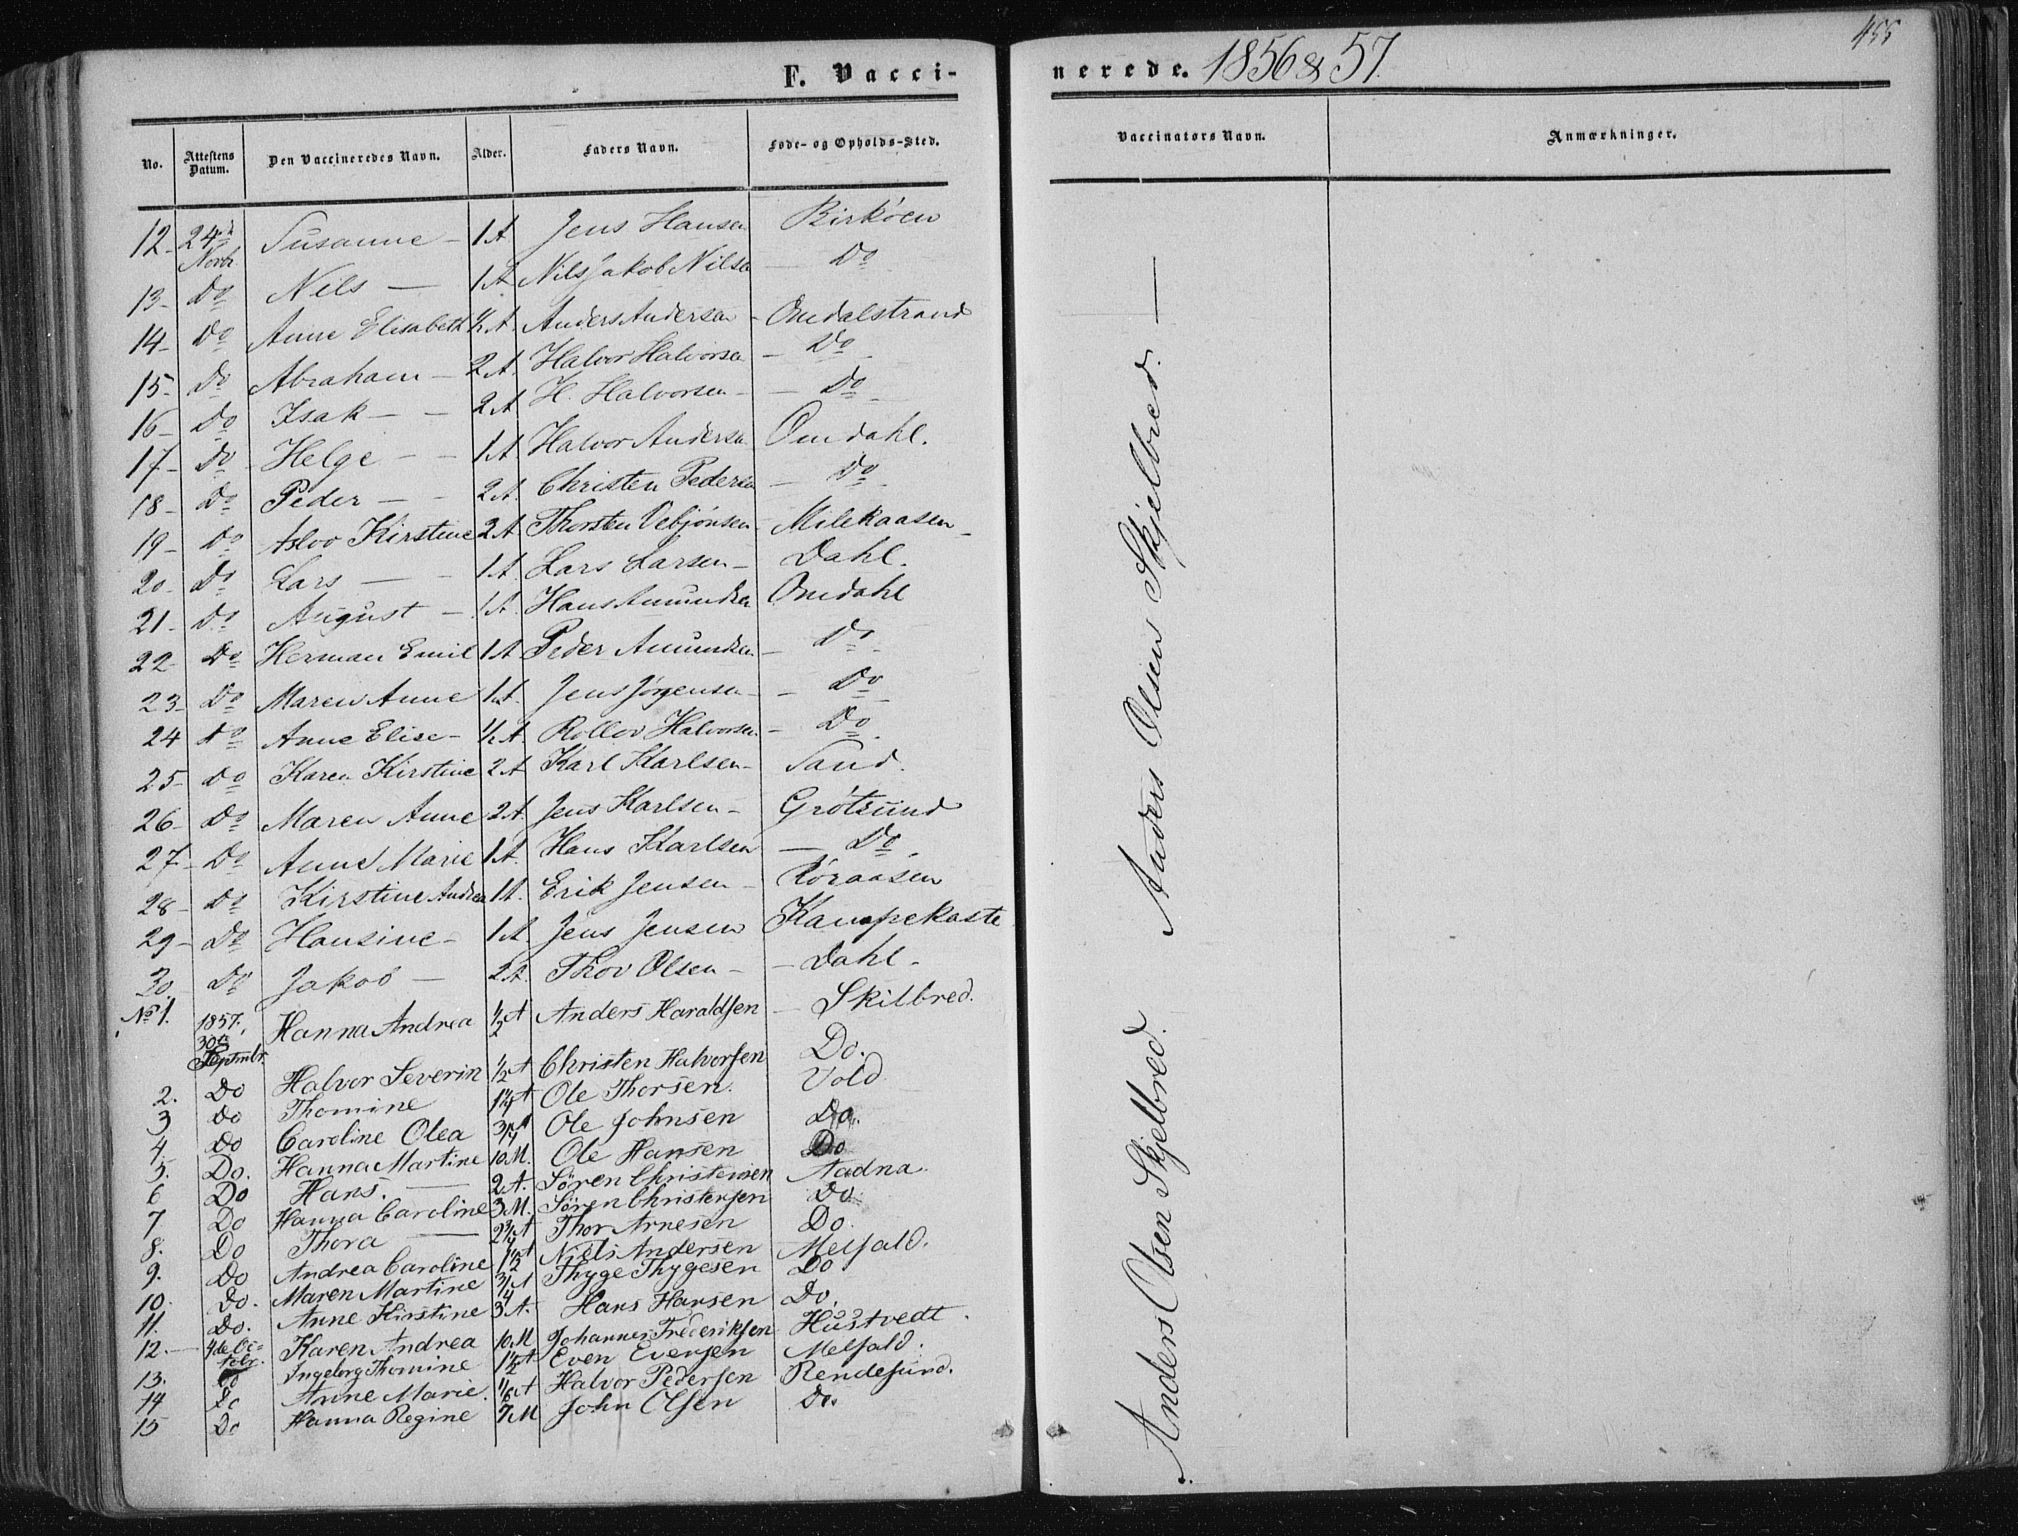 455
F. Vaccinerede. 1856 & 57.
No. Attestens Datum. Den Vaccineredes Navn. Alder. Faders Navn. Føde- og Opholds-Sted. Vaccinators Navn. Anmærkninger.
12 24de Novbr Susanne - 1 A Jens Hansen Birköen
13 Do Nils - 1 A Nils Jakob Nilsen - Do
14 Do Anne Elisabeth ½ A Anders Andersen - Omdalstrand
15 Do Abraham - 2 A. Halvor Halvorsen - Do
16 Do Isak - - 2 A H. Halvorsen - - Do
17 Do Helge - - 1 A Halvor Andersen Omdahl.
18 Do Peder - - 2 A. Christen Pedersen - Do
19 Do Aslov Kirstine 2 A Thorsten Vebjönsen Milekaasen
20 Do Lars - - 1 A. Lars Larsen - Dahl.
21 Do August - 1 A. Hans Amundsen Omdahl
22 Do Herman Emil 1 A Peder Amundsen - Do
23 Do Maren Anne 1 A. Jens Jörgensen - - Do
24 Do Anne Elise - ½ A. Rollov Halvorsen - Do
25 Do Karen Kirstine 2 A Karl Karlsen - Sand.
26 Do Maren Anne 2 A. Jens Karlsen - Grötsund
27 Do Anne Marie 1 A. Hans Karlsen - Do
28 Do Kirstine Andrea 1 A. Erik Jensen - Röraasen
29 Do Hansine - 1 A. Jens Jensen Kampekaste
30 Do Jakob - 2 A. Thov Olsen - - Dahl -
No 1. 1857. 30te Septmbr. Hanna Andrea ½ A Anders Haraldsen - Skilbred.
2. Do Halvor Severin ½ A Christen Halvorsen Do.
3 Do Thomine 1¼ A Ole Thorsen. Vold
4. Do Caroline Olea ¾ A Ole Johnsen Do.
5. Do. Hanna Martine 10 M. Ole Hansen Do
6 Do Hans. - 2 A. Sören Christensen Aadna.
7 Do Hanna Caroline 3 M. Sören Christensen Do
8. Do Thora - 2¾ A Thor Arnesen Do.
9. Do Andrea Caroline 1½ A Niels Andersen Melfald.
10. Do. Maren Martine ¾ A Thyge Thygesen Do
11. Do. Anne Kirstine 3 A. Hans Hansen Do.
12. 4de Octobr. Karen Andrea 10 M Johannes Frederiksen Hustvedt.
13. Do Ingeborg Thomine 1½ A Even Evensen Melfald.
14 Do Anne Marie. A Halvor Pedersen Rendesund.
15 Do Hanna Regine 7 M John Olsen Do.
Anders Olsen Skjelbred. -
Anders Olsen Skjelbred.